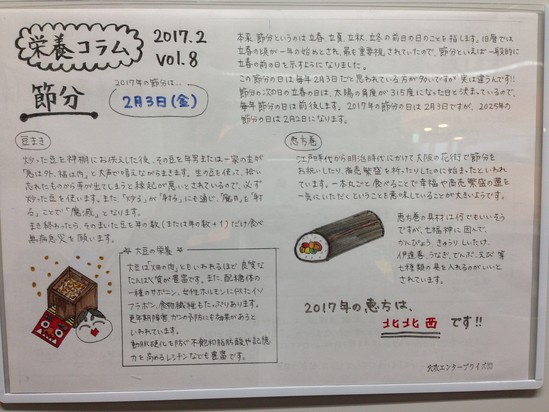 栄養コラム
2017.2
vol.8
節分
2017年の節分は…
2月3日(金)
本来 節分というのは 立春、立夏、立秋、立冬の前日の日のことを指します。旧暦では
立春の頃が一年の始めとされ、最も重要視されていたので、節分といえば一般的に
立春の前の日を示すようになりました。
この節分の日は毎年2月3日だと思われている方が多いですが 実は違うんです!!
節分の次の日の立春の日は、太陽の角度が315度になった日と決まっているので、
毎年節分の日は前後します。2017年の節分の日は2月3日ですが、2025年の
節分の日は2月2日になります。
豆まき
炒った豆を神棚にお供えした後、その豆を年男または一家の主が
「鬼は外、福は内」と大声で唱えながらまきます。生の豆を使って、拾い
忘れたものから芽が出てしまうと縁起が悪いとされているので、必ず
炒った豆を使います。また「炒る」が「射る」にも通じ、「魔の目」を「射
る」ことで「魔滅」となります。
まき終わったら、そのまいた豆を年の数(または年の数+1)だけ食べ
無病息災を願います。
大豆の栄養
大豆は"畑の肉"ともいわれるほど 良質な
たんぱく質が豊富です。また、配糖体の
一種のサポニン、女性ホルモンに似たイソ
フラボン、食物繊維もたっぷりあります。
更年期障害、ガンの予防にも効果があると
いわれています。
動脈硬化を防ぐ不飽和脂肪酸や記憶
力を高めるレシチンなども豊富です。
恵方巻
江戸時代から明治時代にかけて大阪の花街で節分を
お祝いしたり、商売繁盛を祈ったりしたのに始まったといわれ
ています。一本丸ごと食べることで幸福や商売繁盛の運を
一気にいただくということを意味していることが大きいようです。
恵方巻の具材は何でもいいそう
ですが、七福神に因んで、
かんぴょう、きゅうり、しいたけ、
伊達巻、うなぎ、でんぶ、えび 等
七種類の具を入れるのがいいと
されています。
2017年の恵方は、
北北西 です!!